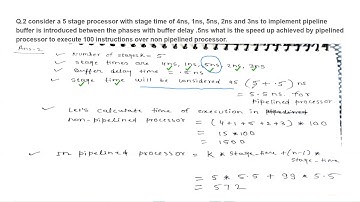 Q.2 consider a 5 stage processor with stage time of 4ns, 1ns, 5ns, 2ns and 3ns to implement pipeline
buffer is introduced between the phases with buffer delay .5ns what is the speed up achieved by pipelined
processor to execute 100 instructions over non pipelined processor.
Ans-2
✓ number of stages = 5
✓ stage times are 4ns, 1ns, 5ns, 2ns, 3ns
✓ Buffer delay time = .5 ns
✓ stage time will be considered as (5 + .5) ns
= 5.5 ns. for
Pipelined processor
✓ Let's calculate time of execution in pipelined
non-pipelined processor = (4+1+5+2+3) * 100
= 15 * 100
= 1500
✓ In pipelined processor = K * stage-time + (n-1) * stage-time
= 5 * 5.5 + 99 * 5.5
= 572